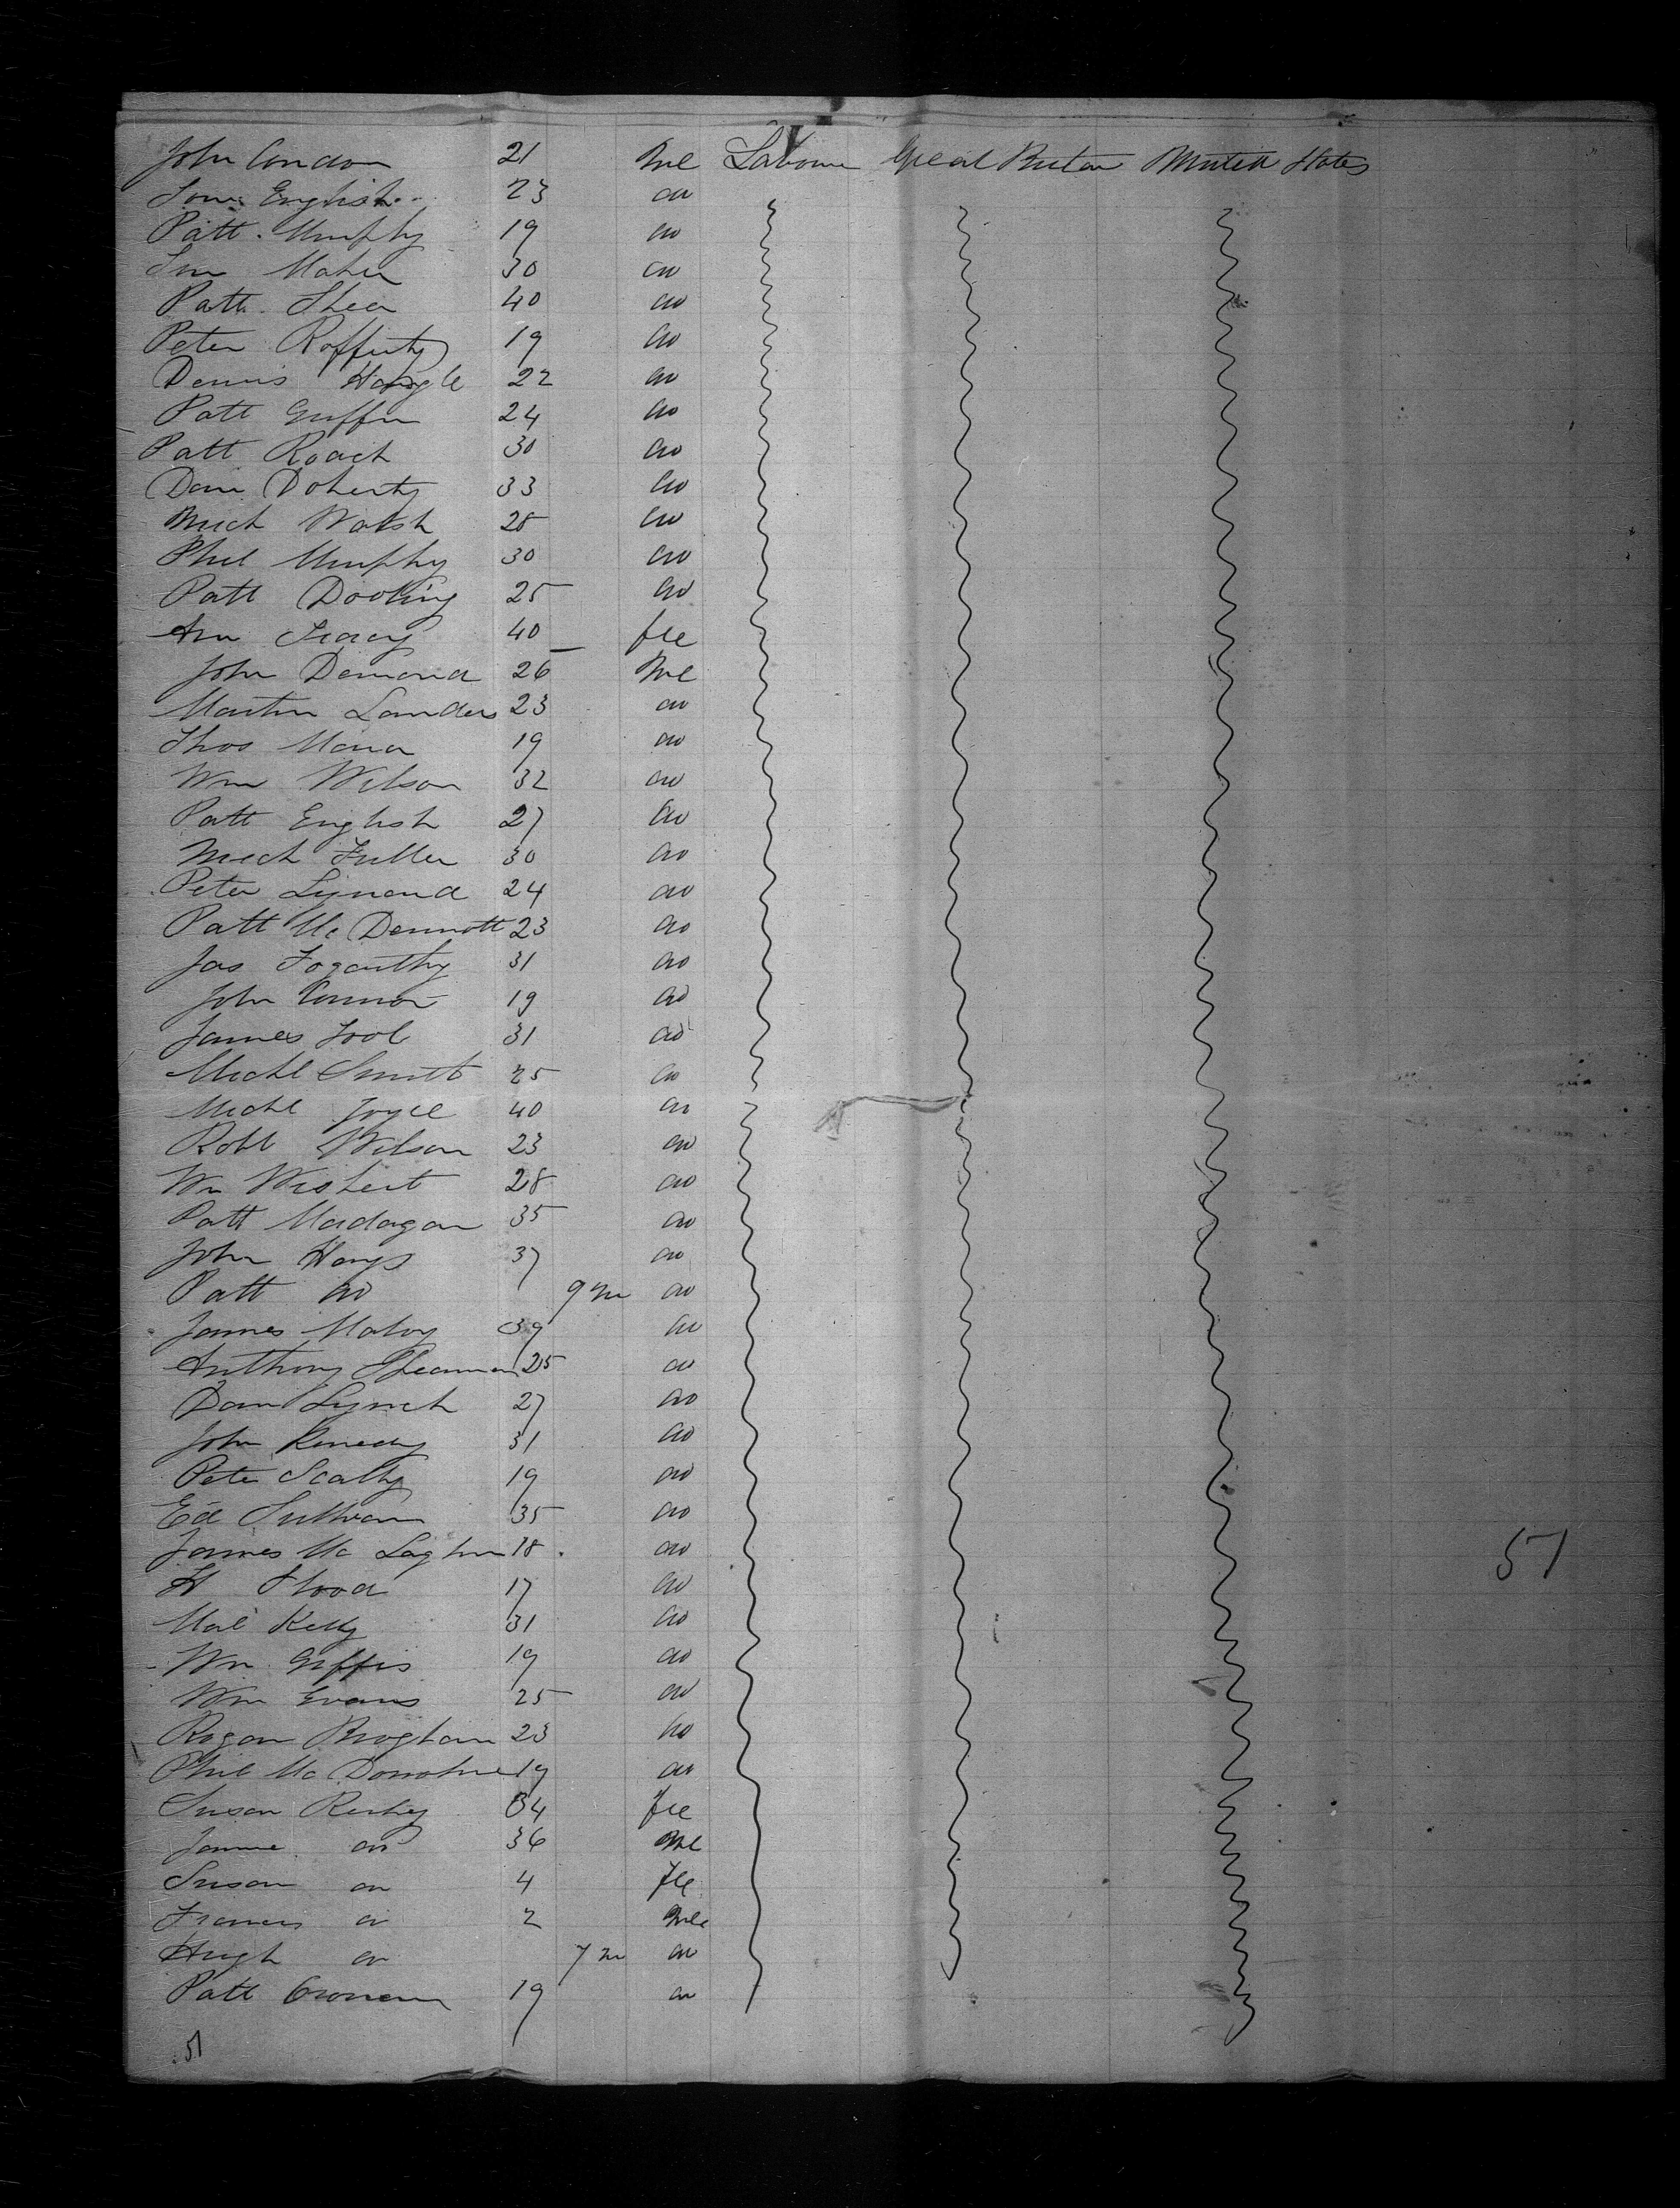 John Condon 21 Mle Labour Great Britan United States
Tom English 23 do
Patt Murphy 19 do
Maher 30 do
Patt Shea 40 do
Peter Rafferty 19 do
Dennis 22 do
Patt Griffin 24 do
Patt Roach 30 do
Dani Doherty 33 do
Mich Walsh 28 do
Phil Murphy 30 do
Patt Dooling 25 do
Ann Tracy 40 fle
John Demond 26 Mle
Martin Landers 23 do
Thos Mara 19 do
Wm Wilson 32 do
Patt English 27 do
Mich Fuller 30 do
Peter Lynond 24 do
Patt Mc Dermott 23 do
Jas Fogarthy 31 do
John Connor 19 do
James Tool 31 do
Michl Smitt 25 do
Michl Joyce 40 do
Robt Wilson 23 do
Wm Wishert 28 do
Patt Madagan 35 do
John Hays 37 do
Patt do 9 m do
James Maloy 39 do
Anthony 25 do
Dan Lynch 27 do
John Kenedy 31 do
Peter Scally 19 do
Ed Sullivan 35 do
James Mc 18 do
H Flood 17 do
Kelly 31 do
Wm Griffis 19 do
Wm Evans 25 do
Rogan Broghan 23 do
Phil Mc Donohue 19 do
Susan 34 fle
do 36 Mle
Susan do 4 fle
Francis do 2 Mle
Hugh do 7 m do
Patt Cronan 19 do
51
51